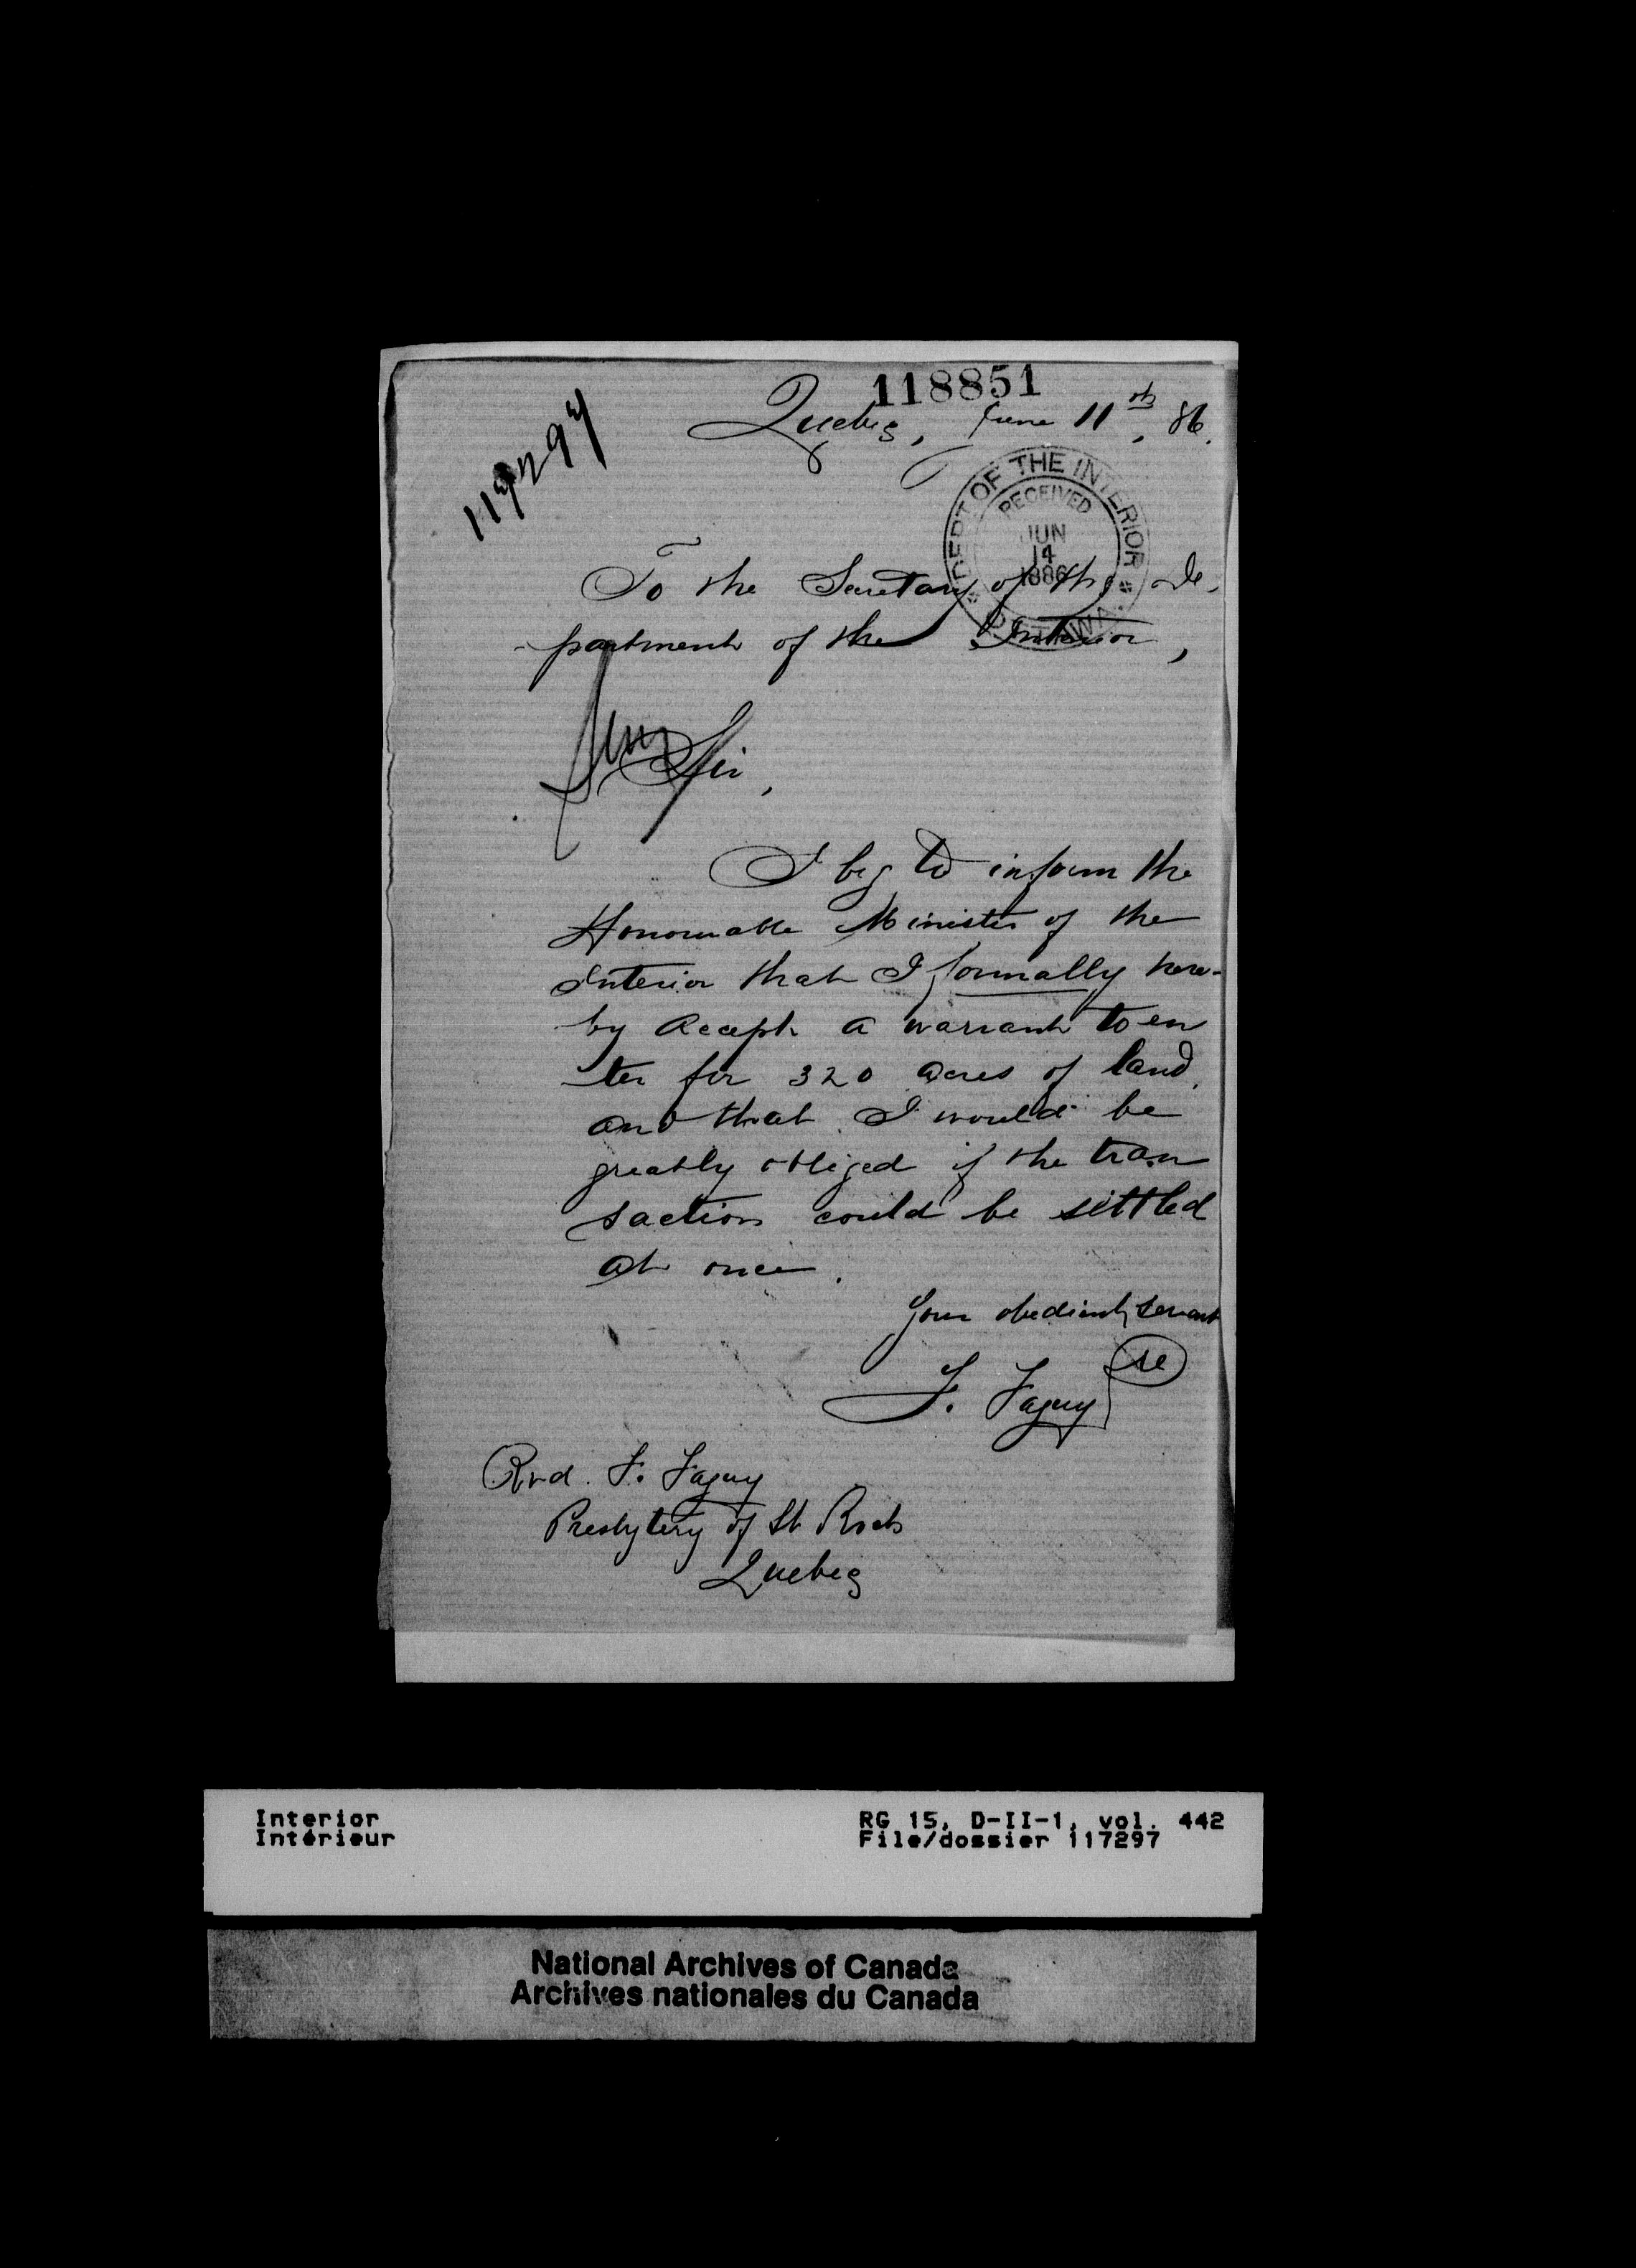 118851
Quebec, June 11th, 86.
117297
DEPT OF THE INTERIOR
RECEIVED
JUN
14
1886
OTTAWA.
To the Secretary of the De-
-partment of the Interior,
Sir,
I beg to inform the
Honourable Minister of the
Interior that I formally here-
by accept a warrant to en
ter for 320 acres of land,
and that I would be
greatly obliged if the tran
saction could be settled
at once.
Your obedient servant
F. Faguy
Rvd. F. Faguy
Presbytery of St Rochs
Quebec
Interior RG 15, D-II-1, vol. 442
Intérieur File/dossier 117297
National Archives of Canada
Archives nationales du Canada